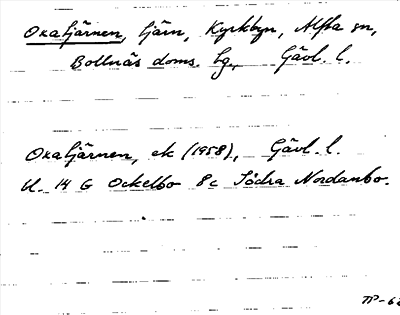 Oxatjärnen, tjärn, Kyrkbyn, Alfta sn,
Bollnäs doms. tg., Gävl. l.
Oxatjärnen, ek (1958), Gävl. l.
U. 14 G Ockelbo 8c Södra Nordanbo.